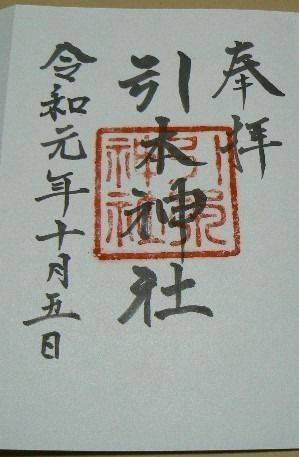 奉拝
引本神社
令和元年十月五日